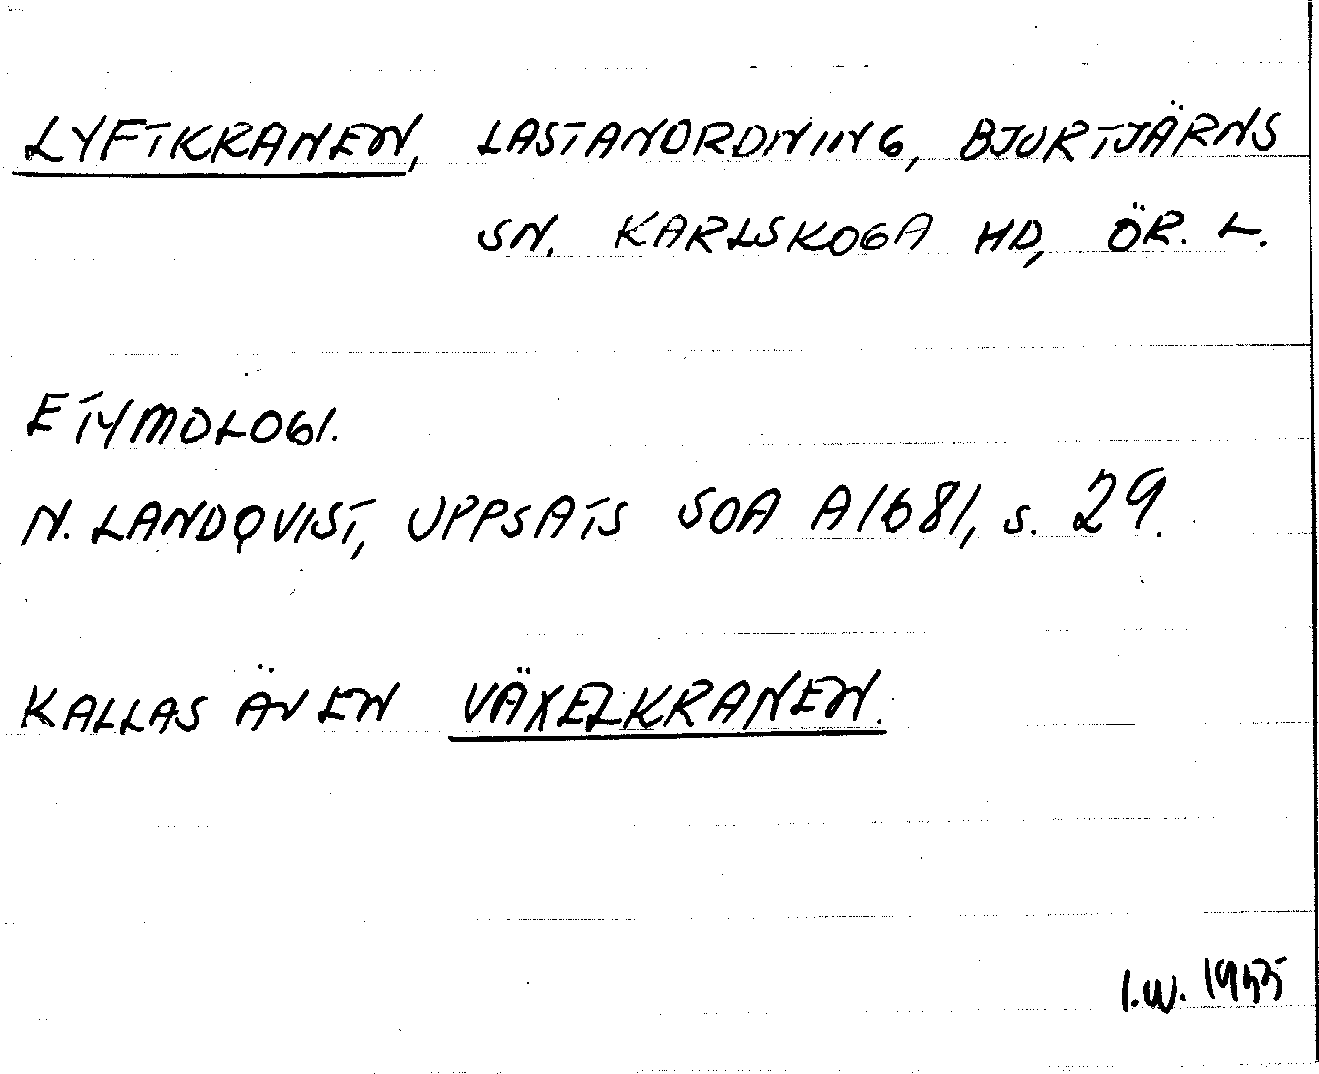 LYFTKRANEN, LASTANORDNING, BJURTJÄRNS
SN. KARLSKOGA HD, ÖR. L.
ETYMOLOGI.
N. LANDQVIST, UPPSATS SOA A1681, S. 29.
KALLAS ÄVEN VÄXELKRANEN.
I.W. 1955